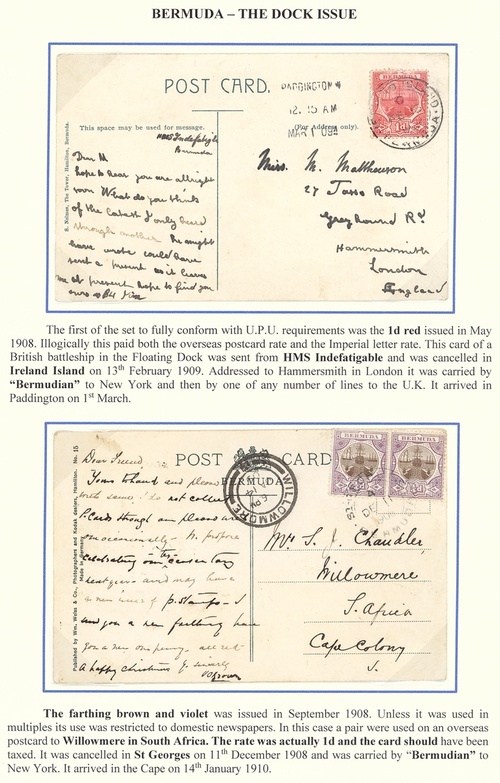 BERMUDA – THE DOCK ISSUE
POST CARD.
PADDINGTON W
12. 15 AM
MAR 1 09
This space may be used for message.
(For Address only).
BERMUDA
1d
HMS Indefatigable
Bermuda
Dear M
hope to hear you are allright
soon What do you think
of the latest I only heard
through mother He might
have wrote could have
sent a present as it leaves
me at present hope to find you
yours
Miss. M. Matthewson
27 Tasso Road
Greyhound Rd
Hammersmith
London
England
S. Nelmes, The Tower, Hamilton, Bermuda.
The first of the set to fully conform with U.P.U. requirements was the 1d red issued in May
1908. Illogically this paid both the overseas postcard rate and the Imperial letter rate. This card of a
British battleship in the Floating Dock was sent from HMS Indefatigable and was cancelled in
Ireland Island on 13th February 1909. Addressed to Hammersmith in London it was carried by
“Bermudian” to New York and then by one of any number of lines to the U.K. It arrived in
Paddington on 1st March.
POST CARD
BERMUDA
WILLOWMORE
BERMUDA
BERMUDA
Dear Friend
Yours to hand and please
I do not collect
P. Cards though am pleased
celebrating our centenary
next year and may have
a new issue of p. stamps - I
send you a new farthing
you a new one penny. all red
A happy Christmas
Mr S. J. Chandler,
Willowmere
S. Africa
Cape Colony
Published by Wm. Weiss & Co., Photographers and Kodak dealers, Hamilton. No. 15
Made in Germany
The farthing brown and violet was issued in September 1908. Unless it was used in
multiples its use was restricted to domestic newspapers. In this case a pair were used on an overseas
postcard to Willowmere in South Africa. The rate was actually 1d and the card should have been
taxed. It was cancelled in St Georges on 11th December 1908 and was carried by “Bermudian” to
New York. It arrived in the Cape on 14th January 1910.